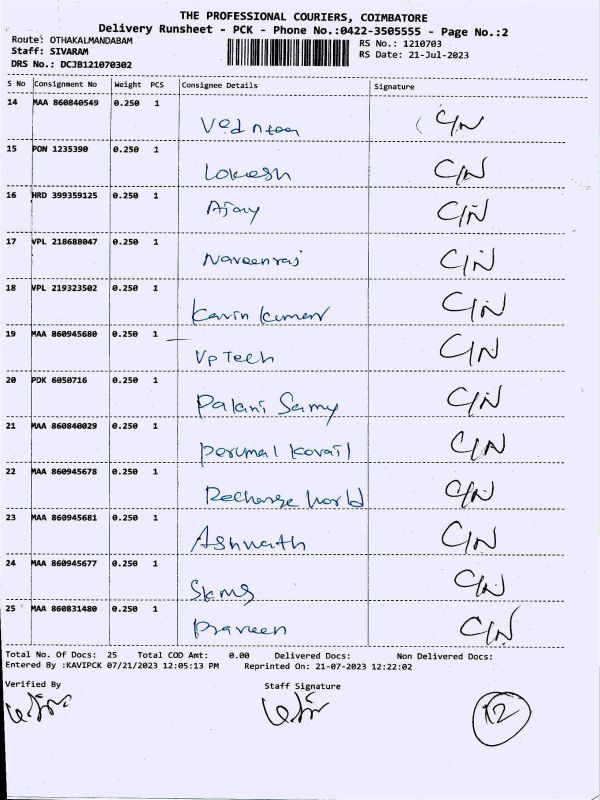 THE PROFESSIONAL COURIERS, COIMBATORE
Delivery Runsheet - PCK - Phone No.:0422-3505555 - Page No.:2
Route: OTHAKALMANDABAM
RS No.: 1210703
Staff: SIVARAM
RS Date: 21-Jul-2023
DRS No.: DCJB121070302
S No Consignment No Weight PCS Consignee Details Signature
14 MAA 860840549 0.250 1 C/N
15 PON 1235390 0.250 1 Lokesh C/N
16 HRD 399359125 0.250 1 Ajay C/N
17 VPL 218688047 0.250 1 Naveenraj C/N
18 VPL 219323502 0.250 1 Kavin kumar C/N
19 MAA 860945680 0.250 1 Vp Tech C/N
20 PDK 6050716 0.250 1 Palani Samy C/N
21 MAA 860840029 0.250 1 perumal kovail C/N
22 MAA 860945678 0.250 1 Recharge World C/N
23 MAA 860945681 0.250 1 Ashwath C/N
24 MAA 860945677 0.250 1 Skms C/N
25 MAA 860831480 0.250 1 Praveen C/N
Total No. Of Docs: 25 Total COD Amt: 0.00 Delivered Docs: Non Delivered Docs:
Entered By :KAVIPCK 07/21/2023 12:05:13 PM Reprinted On: 21-07-2023 12:22:02
Verified By Staff Signature
12